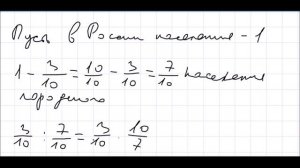 Пусть в России население - 1
1 - 3/10 = 10/10 - 3/10 = 7/10 население
городского
3/10 : 7/10 = 3/10 · 10/7